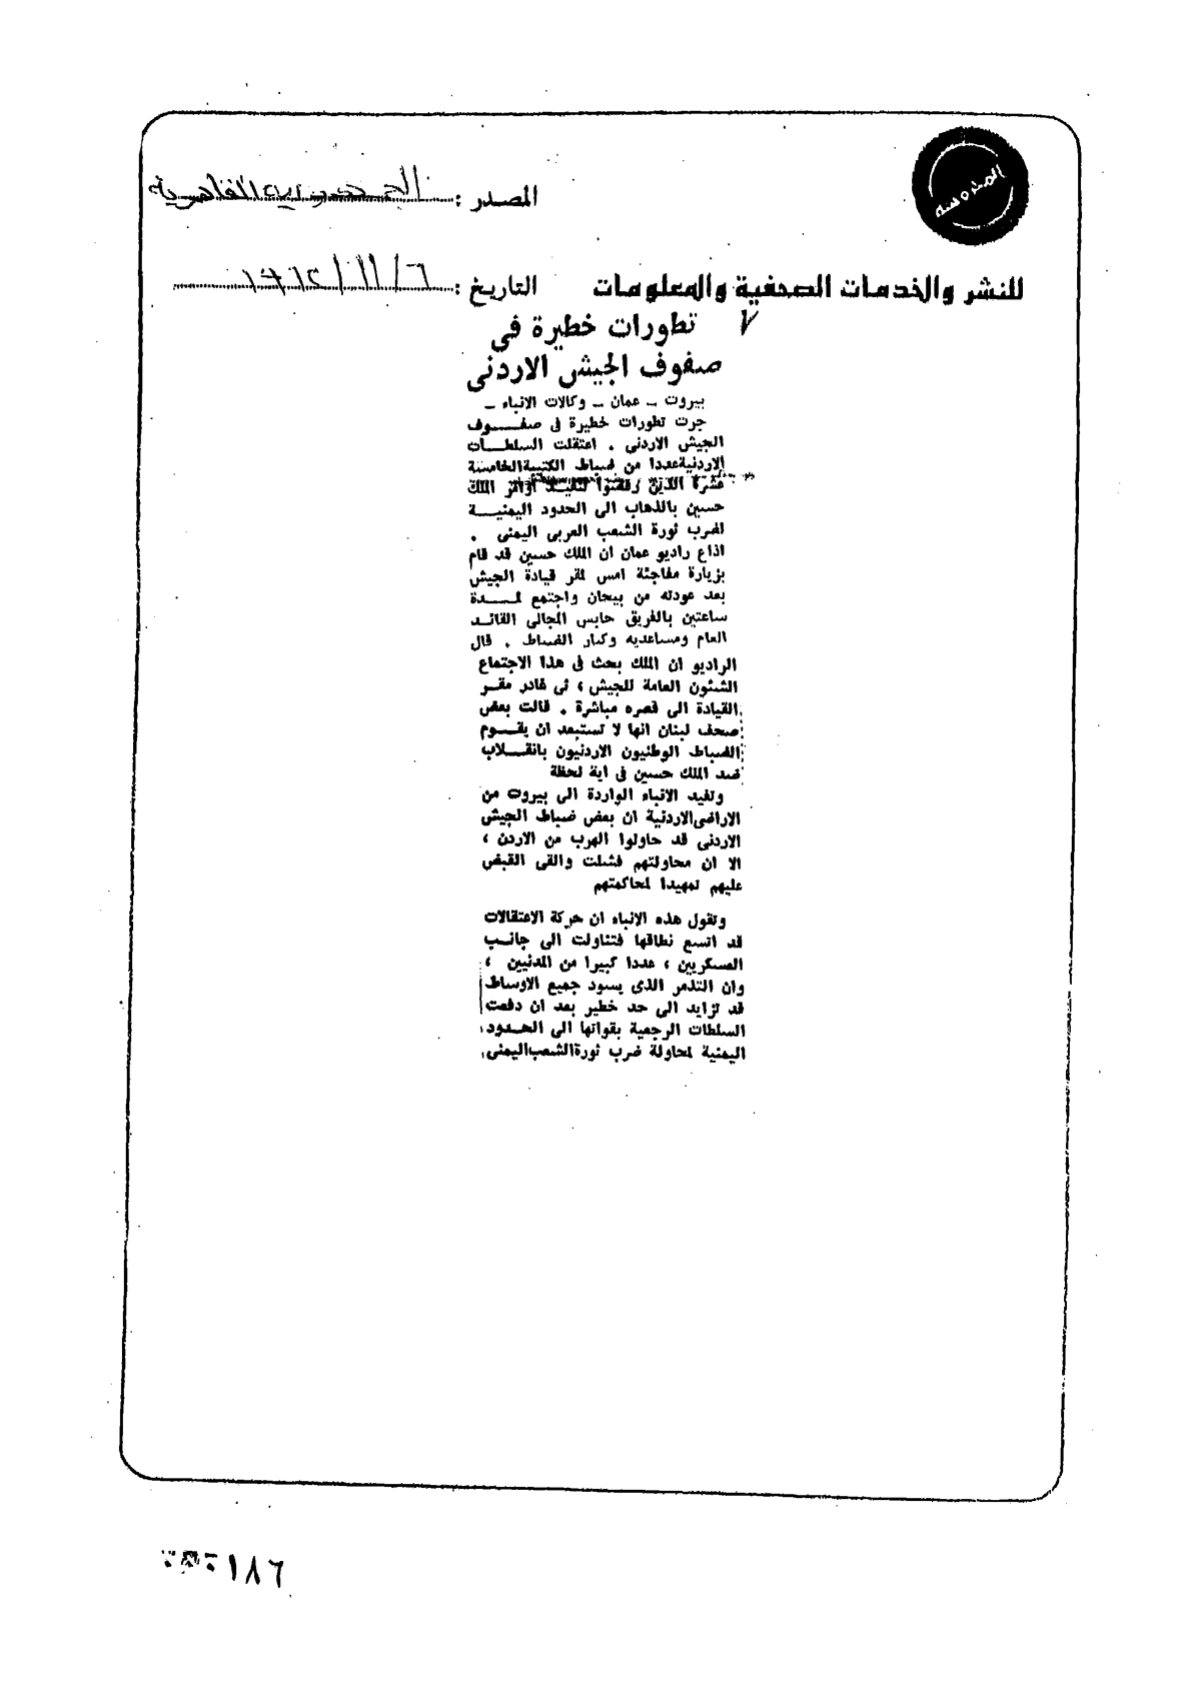 المصدر : الجمهورية القاهرية
للنشر والخدمات الصحفية والمعلومات
التاريخ : ٦/ ١١/ ١٩٦٢
٧
تطورات خطيرة فى
صفوف الجيش الاردنى
بيروت ـ عمان ـ وكالات الانباء ـ
جرت تطورات خطيرة فى صفـــوف
الجيش الاردنى . اعتقلت السلطــات
الاردنية عددا من ضباط الكتيبة الخامسة
عشرة الذين رفضوا تنفيـــذ اوامر الملك
حسين بالذهاب الى الحدود اليمنيـــة
لضرب ثورة الشعب العربى اليمنى .
اذاع راديو عمان ان الملك حسين قد قام
بزيارة مفاجئة امس لمقر قيادة الجيش
بعد عودته من بيحان واجتمع لمـــدة
ساعتين بالفريق حابس المجالى القائــد
العام ومساعديه وكبار الضباط . قال
الراديو ان الملك بحث فى هذا الاجتماع
الشئون العامة للجيش ، ثم غادر مقــر
القيادة الى قصره مباشرة . قالت بعض
صحف لبنان انها لا تستبعد ان يقــوم
الضباط الوطنيون الاردنيون بانقــلاب
ضد الملك حسين فى اية لحظة
وتفيد الانباء الواردة الى بيروت من
الاراضى الاردنية ان بعض ضباط الجيش
الاردنى قد حاولوا الهرب من الاردن ،
الا ان محاولتهم فشلت والقى القبض
عليهم تمهيدا لمحاكمتهم
وتقول هذه الانباء ان حركة الاعتقالات
قد اتسع نطاقها فتناولت الى جانــب
العسكريين ، عددا كبيرا من المدنيين ،
وان التذمر الذى يسود جميع الاوساط
قد تزايد الى حد خطير بعد ان دفعت
السلطات الرجعية بقواتها الى الحــدود
اليمنية لمحاولة ضرب ثورة الشعب اليمنى.
١٨٦